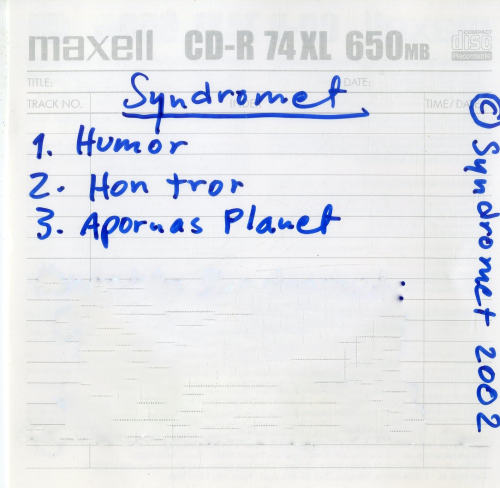 maxell CD-R 74XL 650MB
COMPACT disc Recordable
TITLE: DATE:
Syndromet
TRACK NO. TIME/
1. Humor
2. Hon tror
3. Apornas Planet
© Syndromet 2002